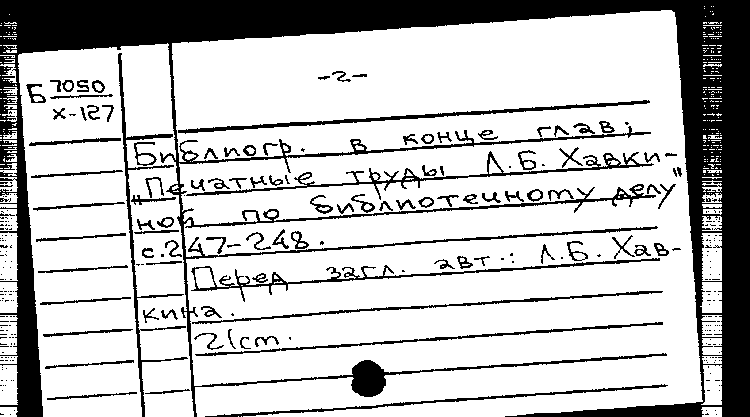 Б 7050
х-127
-2-
Библиогр. в конце глав;
„Печатные труды Л.Б. Хавки-
ной по библиотечному делу"
с.247-248.
Перед загл. авт.: Л.Б. Хав-
кина.
21cm.